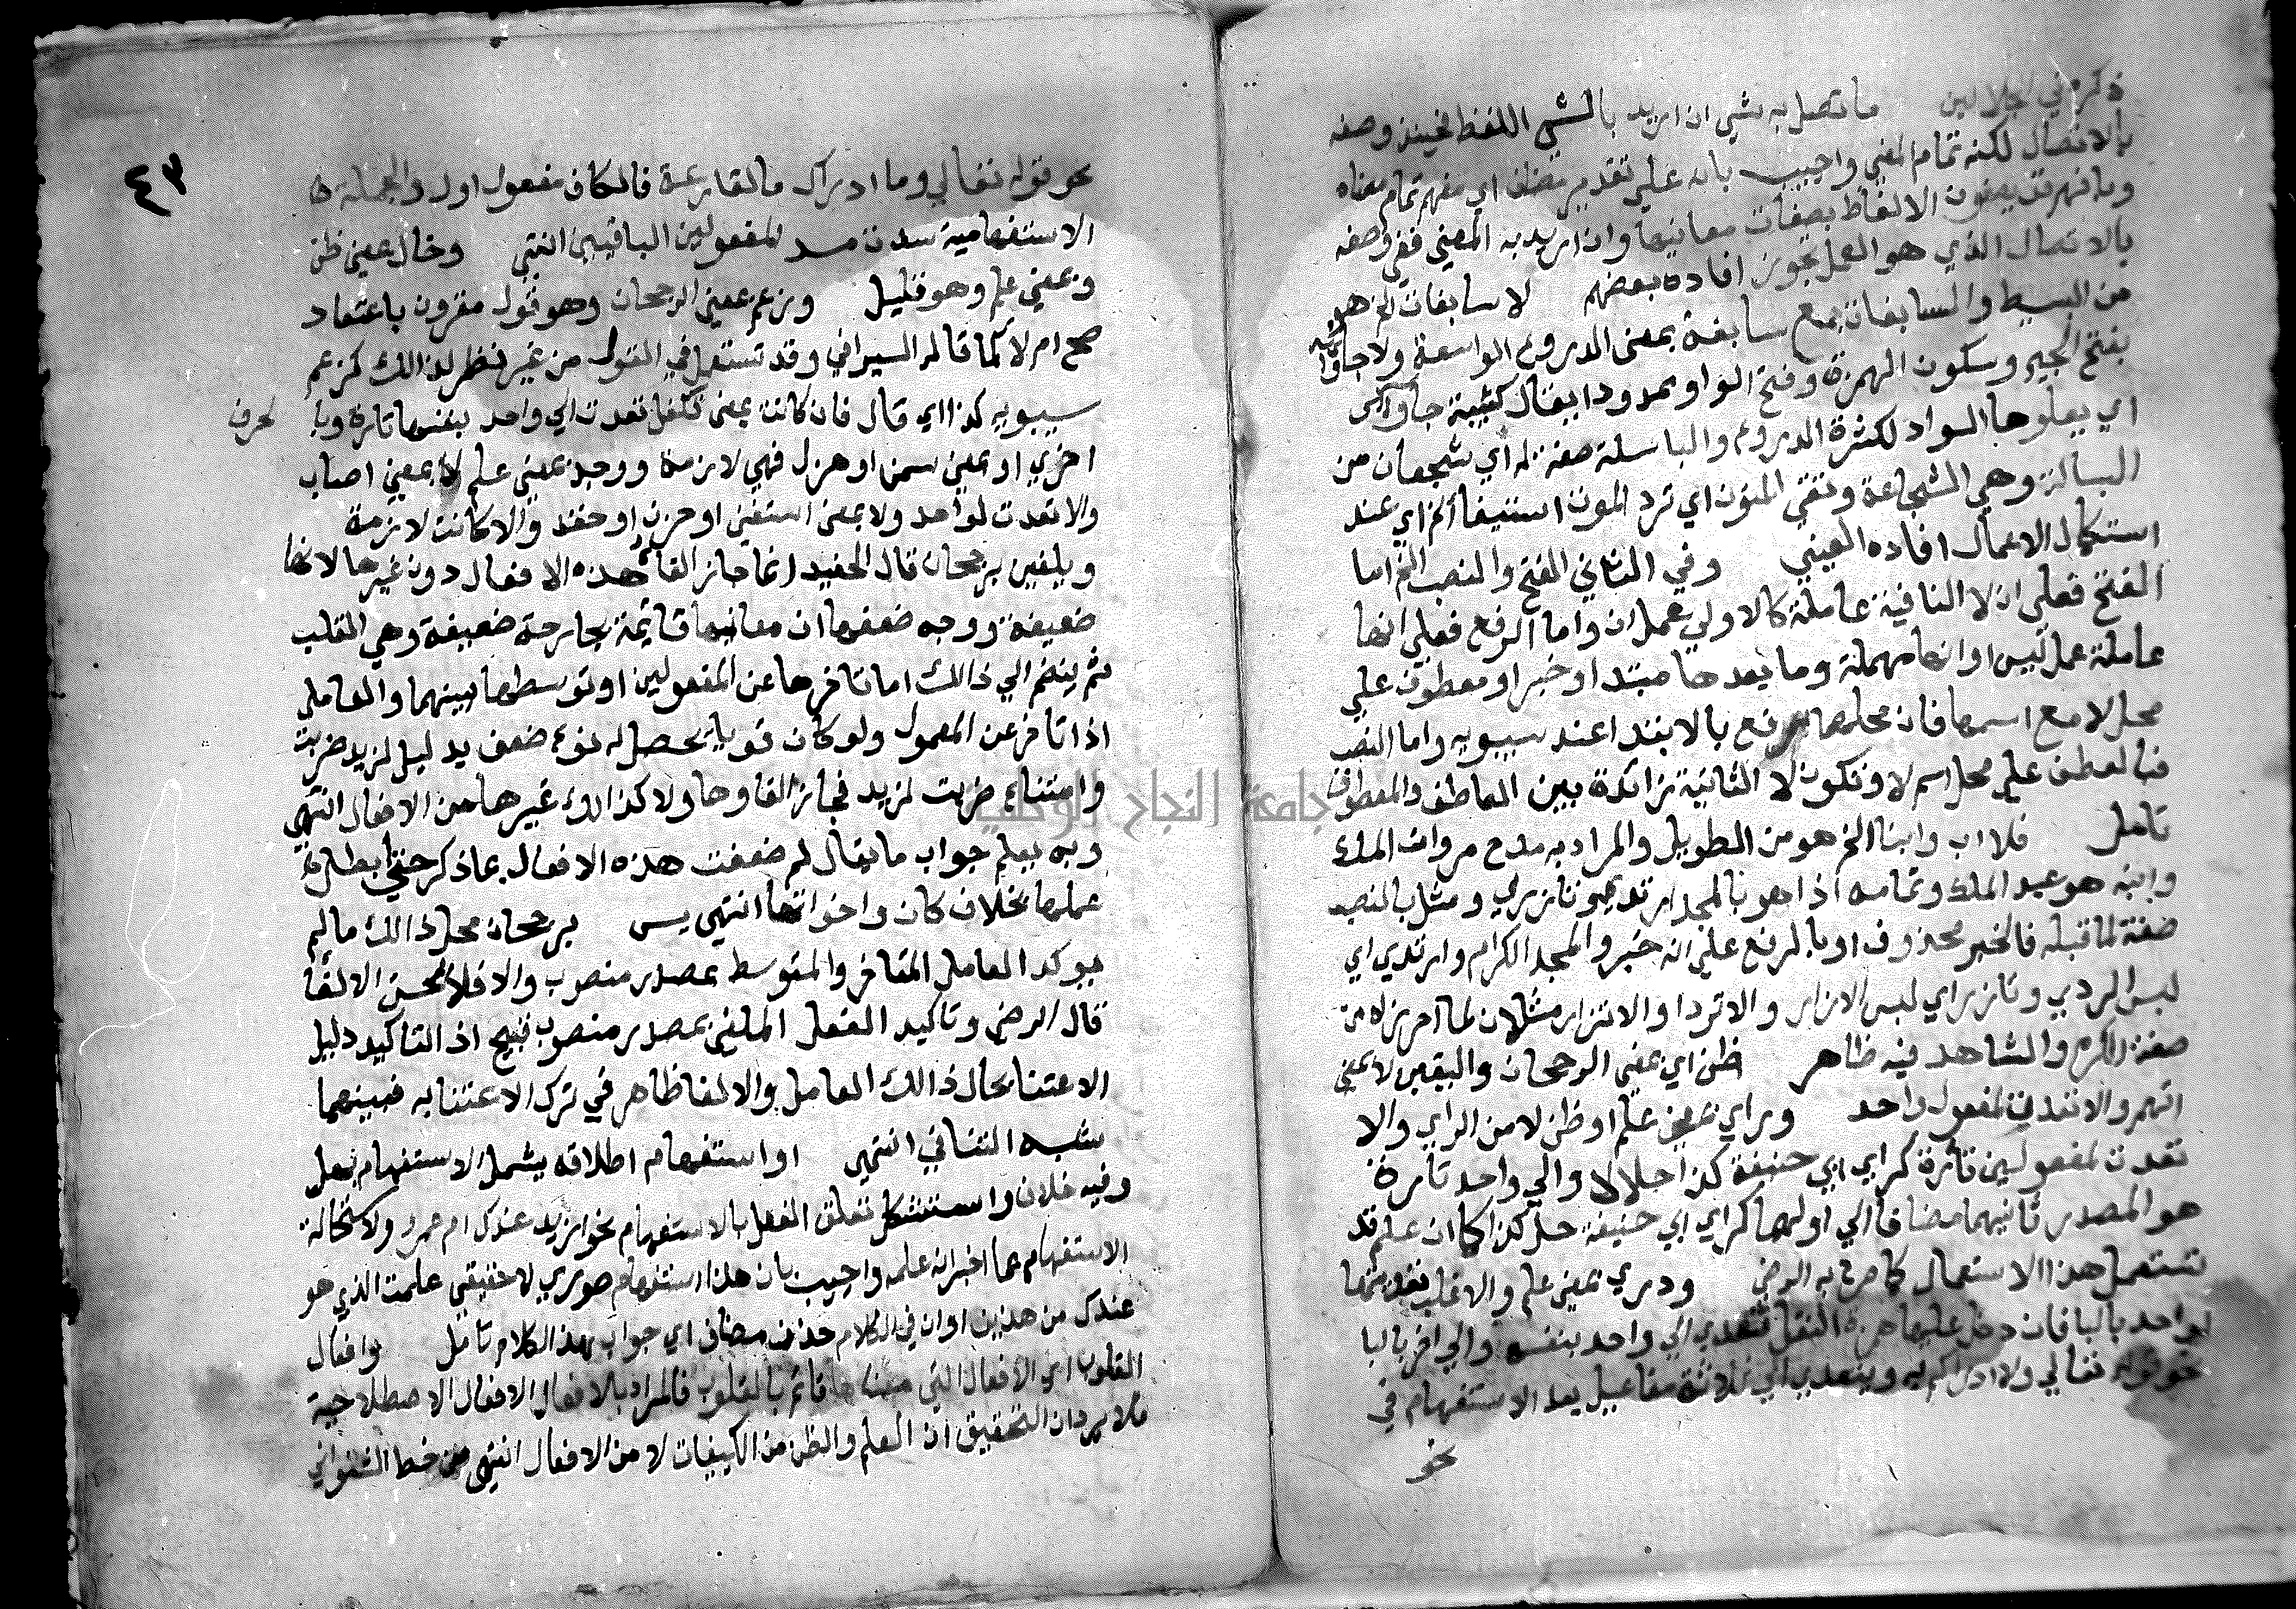 ذكره في الجلالين ما تصل به شي ان اريد بالشي اللفظ فحينئذ وصفه
بالاتصال لكنه تمام المعني واجيب بانه علي تقدير مضاف اي مفهم تمام معناه
وبانهم يصفون الالفاظ بصفات معانيها وان اريد به المعني ففي وصفه
بالاتصال الذي هو العمل تجوز افاده بعضهم لا سابغات الخ هو
من البسيط والسابغات جمع سابغة بمعنى الدروع الواسعة ولا جاواء
بفتح الجيم وسكون الهمزة وفتح الواو ممدودا يقال كتيبة جاواء
اي يعلوها السواد لكثرة الدروع والباسلة صفة له اي شجعان من
البسالة وهي الشجاعة وتقي المنون اي ترد الموت استيفا الخ اي عند
استكمال الاعمال افاده العيني وفي الثاني الفتح والنصب الخ اما
الفتح فعلي ان لا النافية عاملة كالاولي عمل ان واما الرفع فعلي انها
عاملة عمل ليس او انها مهملة وما بعدها مبتدا وخبر او معطوف علي
محل لا مع اسمها فان محلها رفع بالابتدا عند سيبويه واما النصب
فبالعطف علي محل اسم لا وتكون لا الثانية زائدة بين العاطف والمعطوف
تامل فلا اب وابنا الخ هو من الطويل والمراد به مدح مروان الملك
وابنه هو عبد الملك وتمامه اذا هو بالمجد ارتدي وتازري ومثل بالنصب
صفة لما قبله فالخبر محذوف او بالرفع علي انه خبر والمجد الكرام وارتدي اي
لبس الردي وتازر اي لبس الازار والارتدا والاتزار مثلان لما احرزاه من
صفة الكرم والشاهد فيه ظاهر ظن اي بمعني الرجحان واليقين لا بمعنى
اتهم والا تعدت لمفعول واحد وراي بمعنى علم او ظن لا من الراي والا
تعدت لمفعولين تارة كراي ابي حنيفة كذا حلالا والي واحد تارة
هو المصدر ثانيهما مضافا الي اولهما كراي ابي حنيفة حل كذا كما ان علم قد
تستعمل هذا الاستعمال كما صرح به الرضي ودري بمعنى علم والاغلب تعديتها
لواحد بالبا فان دخل عليها همزة النقل تتعدي الي واحد بنفسه والي اخر بالبا
نحو قوله تعالي ولا ادراكم به ويتعدي الي ثلاثة مفاعيل بعد الاستفهام في
نحو
٤٣
نحو قوله تعالي وما ادراك ما القارعة فالكاف مفعول اول والجملة
الاستفهامية سدت مسد المفعولين الباقيين انتهي وخال بمعنى ظن
وبمعني علم وهو قليل وزعم بمعنى الرجحان وهو قول مقرون باعتقاد
صح ام لا كما قاله السيرافي وقد تستعمل في القول من غير نظر لذالك كزعم
سيبويه كذا اي قال فان كانت بمعنى تكفل تعدت الي واحد بنفسها تارة وبا لحرف
اخري او بمعنى سمن او هزل فهي لازمة ووجد بمعني علم لا بمعني اصاب
والا تعدت لواحد ولا بمعنى استغنى او حزن او حقد والا كانت لازمة
ويلغين برجحان قال الحفيد انما جاز الغا هذه الافعال دون غيرها لانها
ضعيفة ووجه ضعفها ان معانيها قايمة بجارحة ضعيفة وهي القلب
ثم ينضم الي ذالك اما تاخرها عن المفعولين او توسطها بينهما والعامل
اذا تاخر عن المعمول ولو كان قويا يحصل له نوع ضعف بدليل لزيد ضربت
وامتناع ضربت لزيد فجاز الغاوها ولا كذالك غيرها من الافعال انتهي
وبه يعلم جواب ما يقال لم ضعفت هذه الافعال بما ذكر حتي ابطل
عملها بخلاف كان واخواتها انتهي يس برجحان محل ذالك ما لم
يوكد العامل المتاخر والمتوسط بمصدر منصوب والا فلا يحسن الالغا
قال الرضي وتاكيد الفعل الملغى بمصدر منصوب قبيح اذ التاكيد دليل
الاعتنا بحال ذالك العامل والالغا ظاهر في ترك الاعتنا به فبينهما
شبه التنافي انتهي او استفهام اطلاقه يشمل الاستفهام بهل
وفيه خلاف واستشكل تعلق الفعل بالاستفهام نحو ازيد عندك ام عمرو ولاستحالة
الاستفهام عما اخبر انه علمه واجيب بان هذا استفهام صوري لا حقيقي علمت الذي هو
عندك من هذين او ان في الكلام حذف مضاف اي جواب هذا الكلام تامل وافعال
القلوب اي الافعال التي معناها قائم بالقلوب فالمراد بالافعال الافعال الاصطلاحية
فلا يرد ان التحقيق ان العلم والظن من الكيفيات لا من الافعال انتهي من خط الشنواني
جامعة النجاح الوطنية